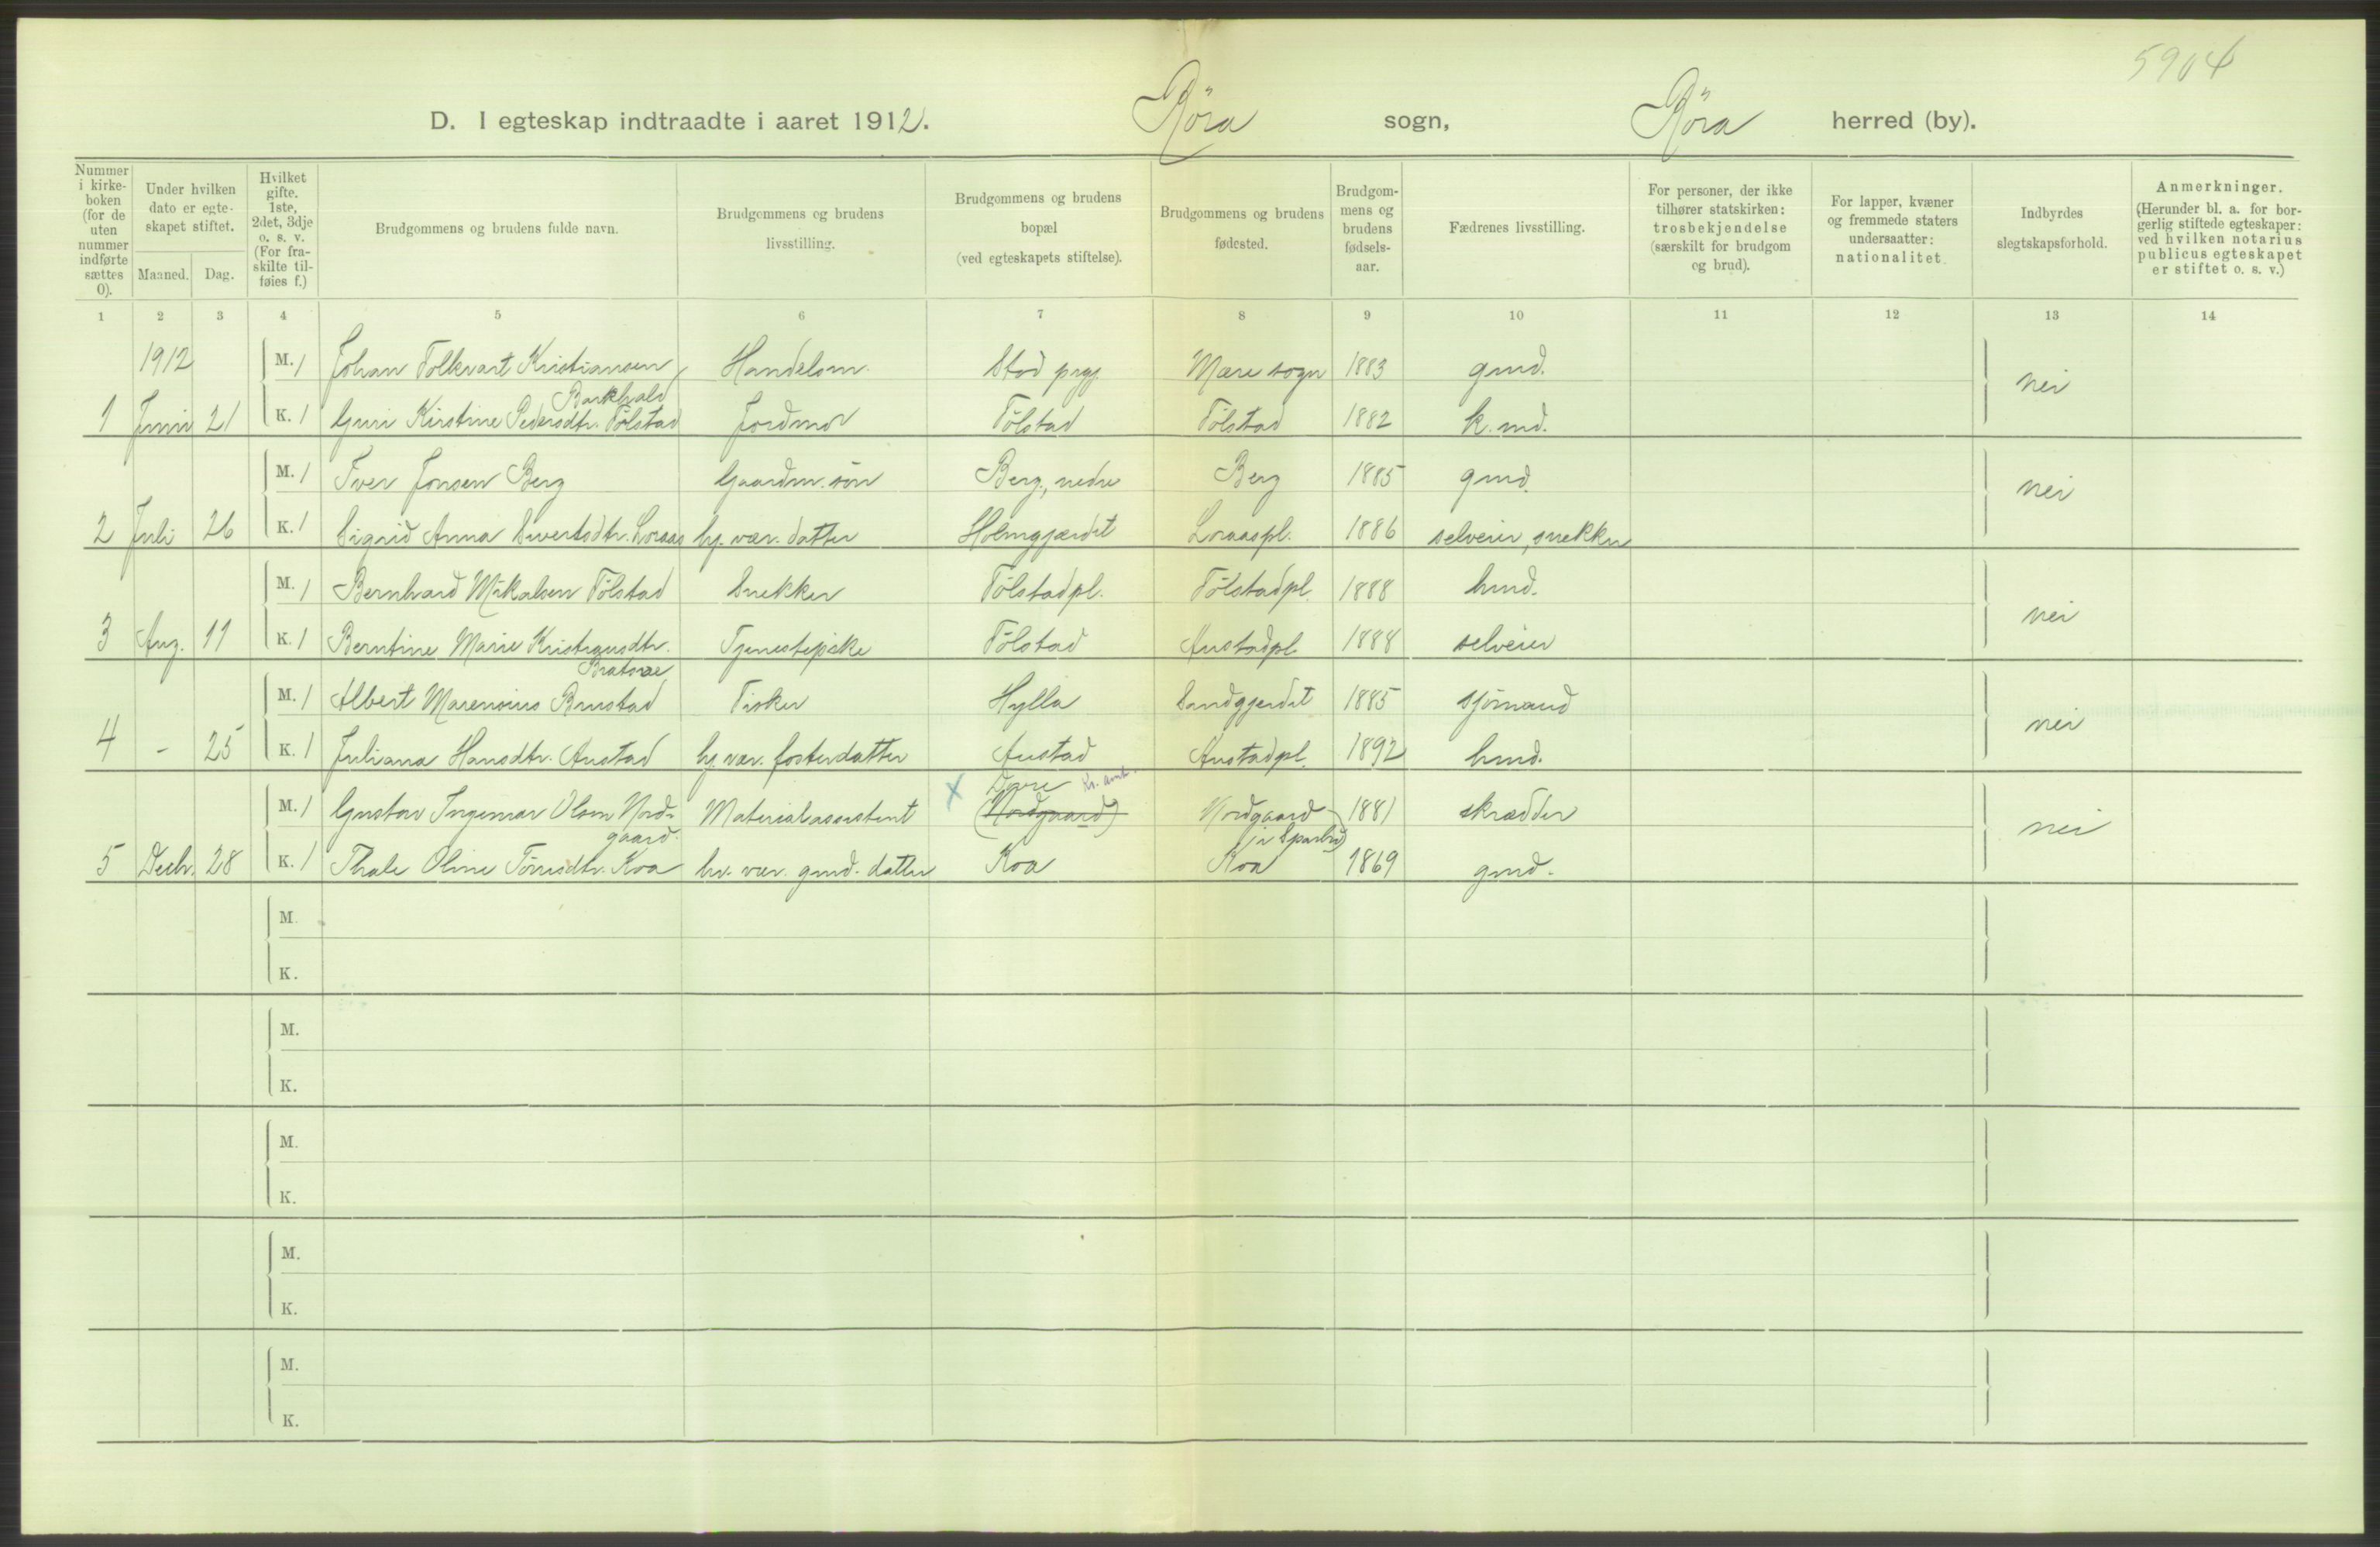 5904
D. I egteskap indtraadte i aaret 1912. Röra sogn, Röra herred (by).
Nummer i kirke-boken (for de uten nummer indførte sættes 0).
Under hvilken dato er egte-skapet stiftet.
Maaned. Dag.
Hvilket gifte. 1ste, 2det, 3dje o. s. v. (For fra-skilte til-føies f.)
Brudgommens og brudens fulde navn.
Brudgommens og brudens livsstilling.
Brudgommens og brudens bopæl (ved egteskapets stiftelse).
Brudgommens og brudens fødested.
Brudgom-mens og brudens fødsels-aar.
Fædrenes livsstilling.
For personer, der ikke tilhører statskirken: trosbekjendelse (særskilt for brudgom og brud).
For lapper, kvæner og fremmede staters undersaatter: nationalitet
Indbyrdes slegtskapsforhold.
Anmerkninger. (Herunder bl. a. for bor-gerlig stiftede egteskaper: ved hvilken notarius publicus egteskapet er stiftet o. s. v.)
1 2 3 4 5 6 7 8 9 10 11 12 13 14
1912 M. 1 Johan Folkvart Kristiansen Handelsm. Stod prgj. Mære sogn 1883 gmd. nei
Barkhald
1 Juni 21 K. 1 Guri Kirstine Pedersdtr. Tölstad Jordmor Tölstad Tölstad 1882 k. md.
M. 1 Iver Jonsen Berg Gaardm. sön Berg, nedre Berg 1885 gmd. nei
2 Juli 26 K. 1 Sigrid Anna Sivertsdtr. Loraas hj. vær. datter Holmgjærdet Loraaspl. 1886 selveier, snekker
M. 1 Bernhard Mikalsen Tölstad Snekker Tölstadpl. Tölstadpl. 1888 hmd. nei
3 Aug. 11 K. 1 Berntine Marie Kristiansdtr. Tjenestepike Tölstad Austadpl. 1888 selveier
M. 1 Albert Marensius Rustad Fisker Hylla Sandgjerdet 1885 sjömand nei
4 - 25 K. 1 Juliana Hansdtr. Austad hj. vær. fosterdatter Austad Austadpl. 1892 hmd.
x Dovre Kr. amt.
M. 1 Gustav Ingemar Olsen Nord- Materialassistent (Nordgaard) Nordgaard 1881 skrædder nei
gaard. i Sparbu)
5 Decbr. 28 K. 1 Thale Oline Törrisdtr. Koa hj. vær. gmd. datter Koa Koa 1869 gmd.
M.
K.
M.
K.
M.
K.
M.
K.
M.
K.